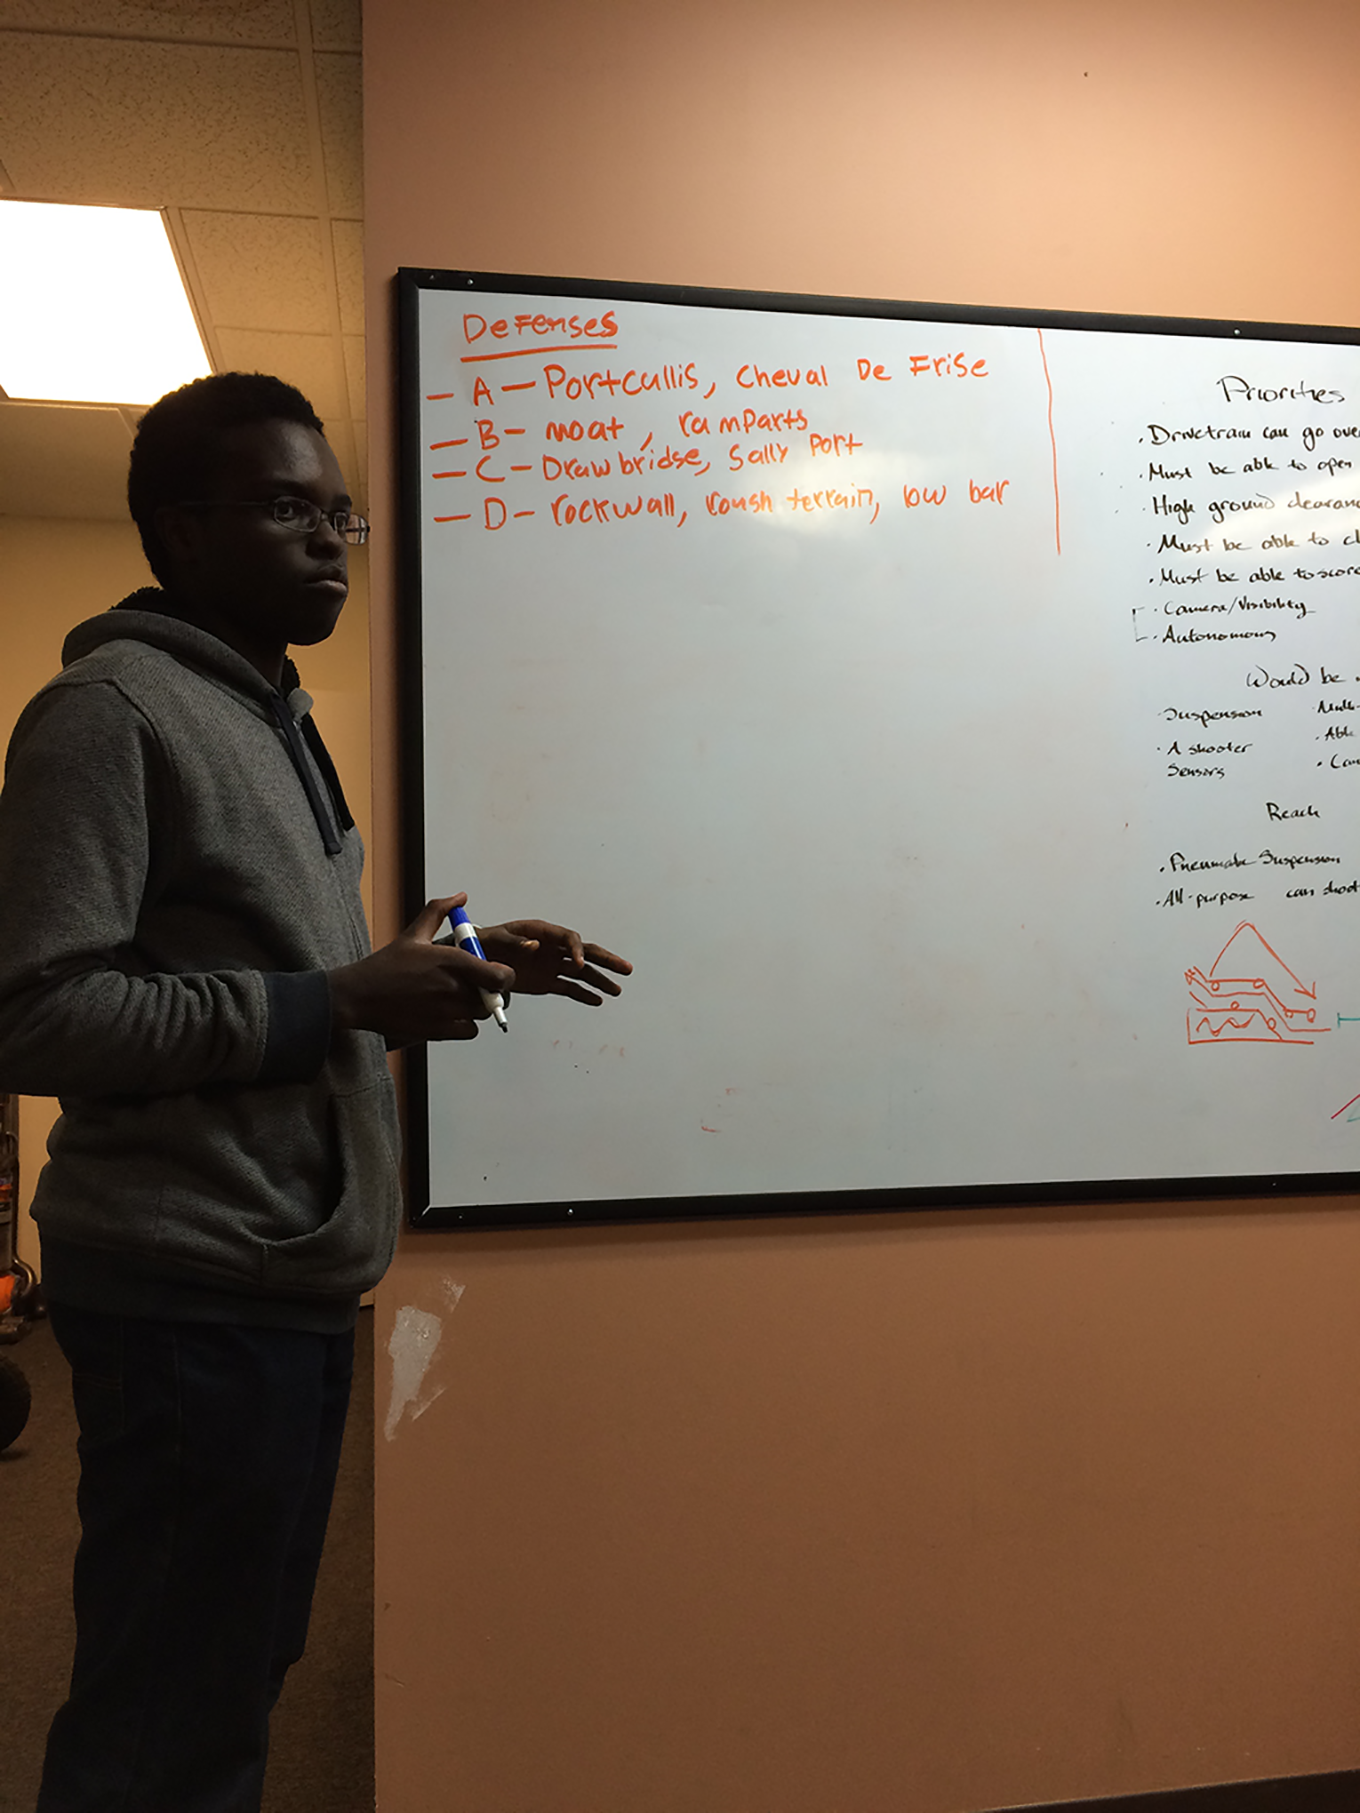 Defenses
- A - Portcullis, Cheval De Frise
- B - moat, ramparts
- C - Drawbridse, Sally Port
- D - rockwall, roush terrain, low bar
Priorities
· Drivetrain can go over
· Must be able to open
· High ground clearanc
· Must be able to cl
· Must be able to score
· Camera/Visibility
· Autonomous
Would be
· Suspension
· A shooter
Sensors
· Multi-
· Able
· Can
Reach
· Pneumatic Suspension
· All-purpose can shoot